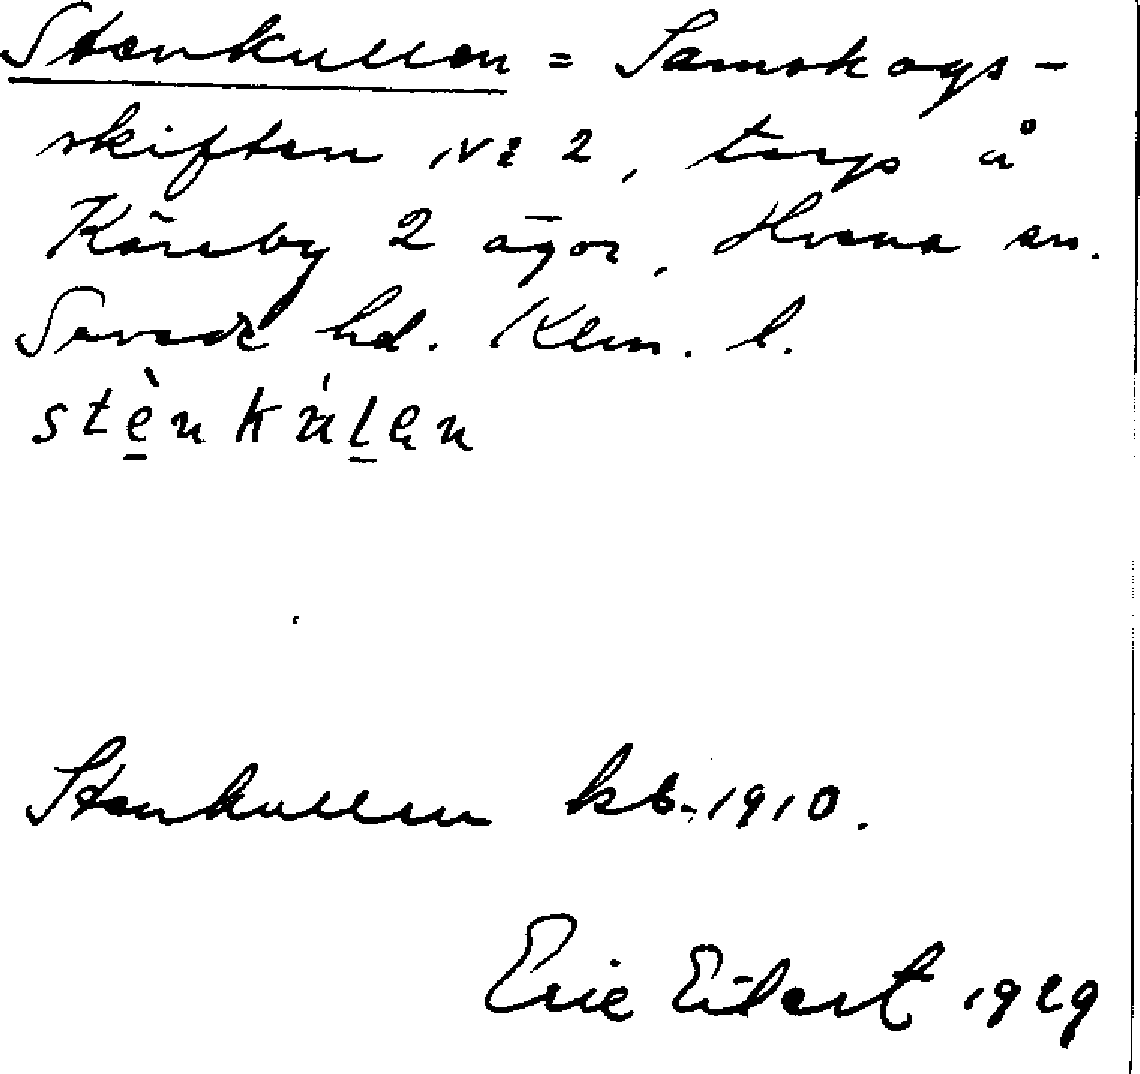 Stenkullen = Samskogs-
skiften No 2, torp å
Käreby 2 ägor, Hvena sn.
Sevede hd. Klm. l.
stènkúlen
Stenkullen kb. 1910.
Eric Eilert 1929